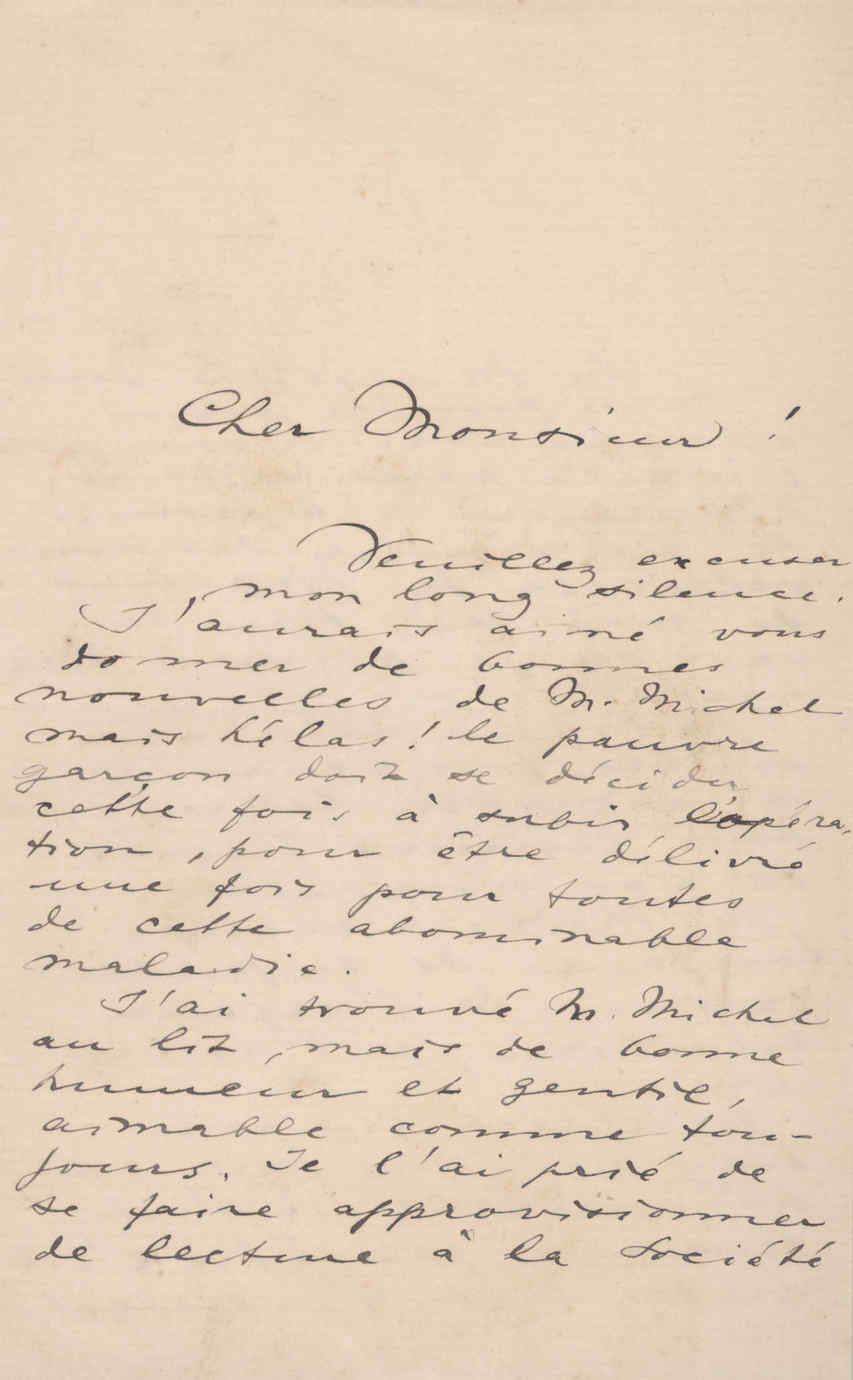 Cher Monsieur !
Veuillez excuser
mon long silence.
J'aurais aimé vous
donner de bonnes
nouvelles de M. Michel
mais hélas! le pauvre
garçon doit se décider
cette fois à subir l'opéra-
tion, pour être délivré
une fois pour toutes
de cette abominable
maladie.
J'ai trouvé M. Michel
au lit, mais de bonne
humeur et gentil,
aimable comme tou-
jours. Je l'ai prié de
se faire approvisionner
de lecture à la Société